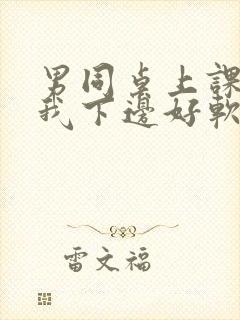 男同桌上課
我下邊好軟
雷文福